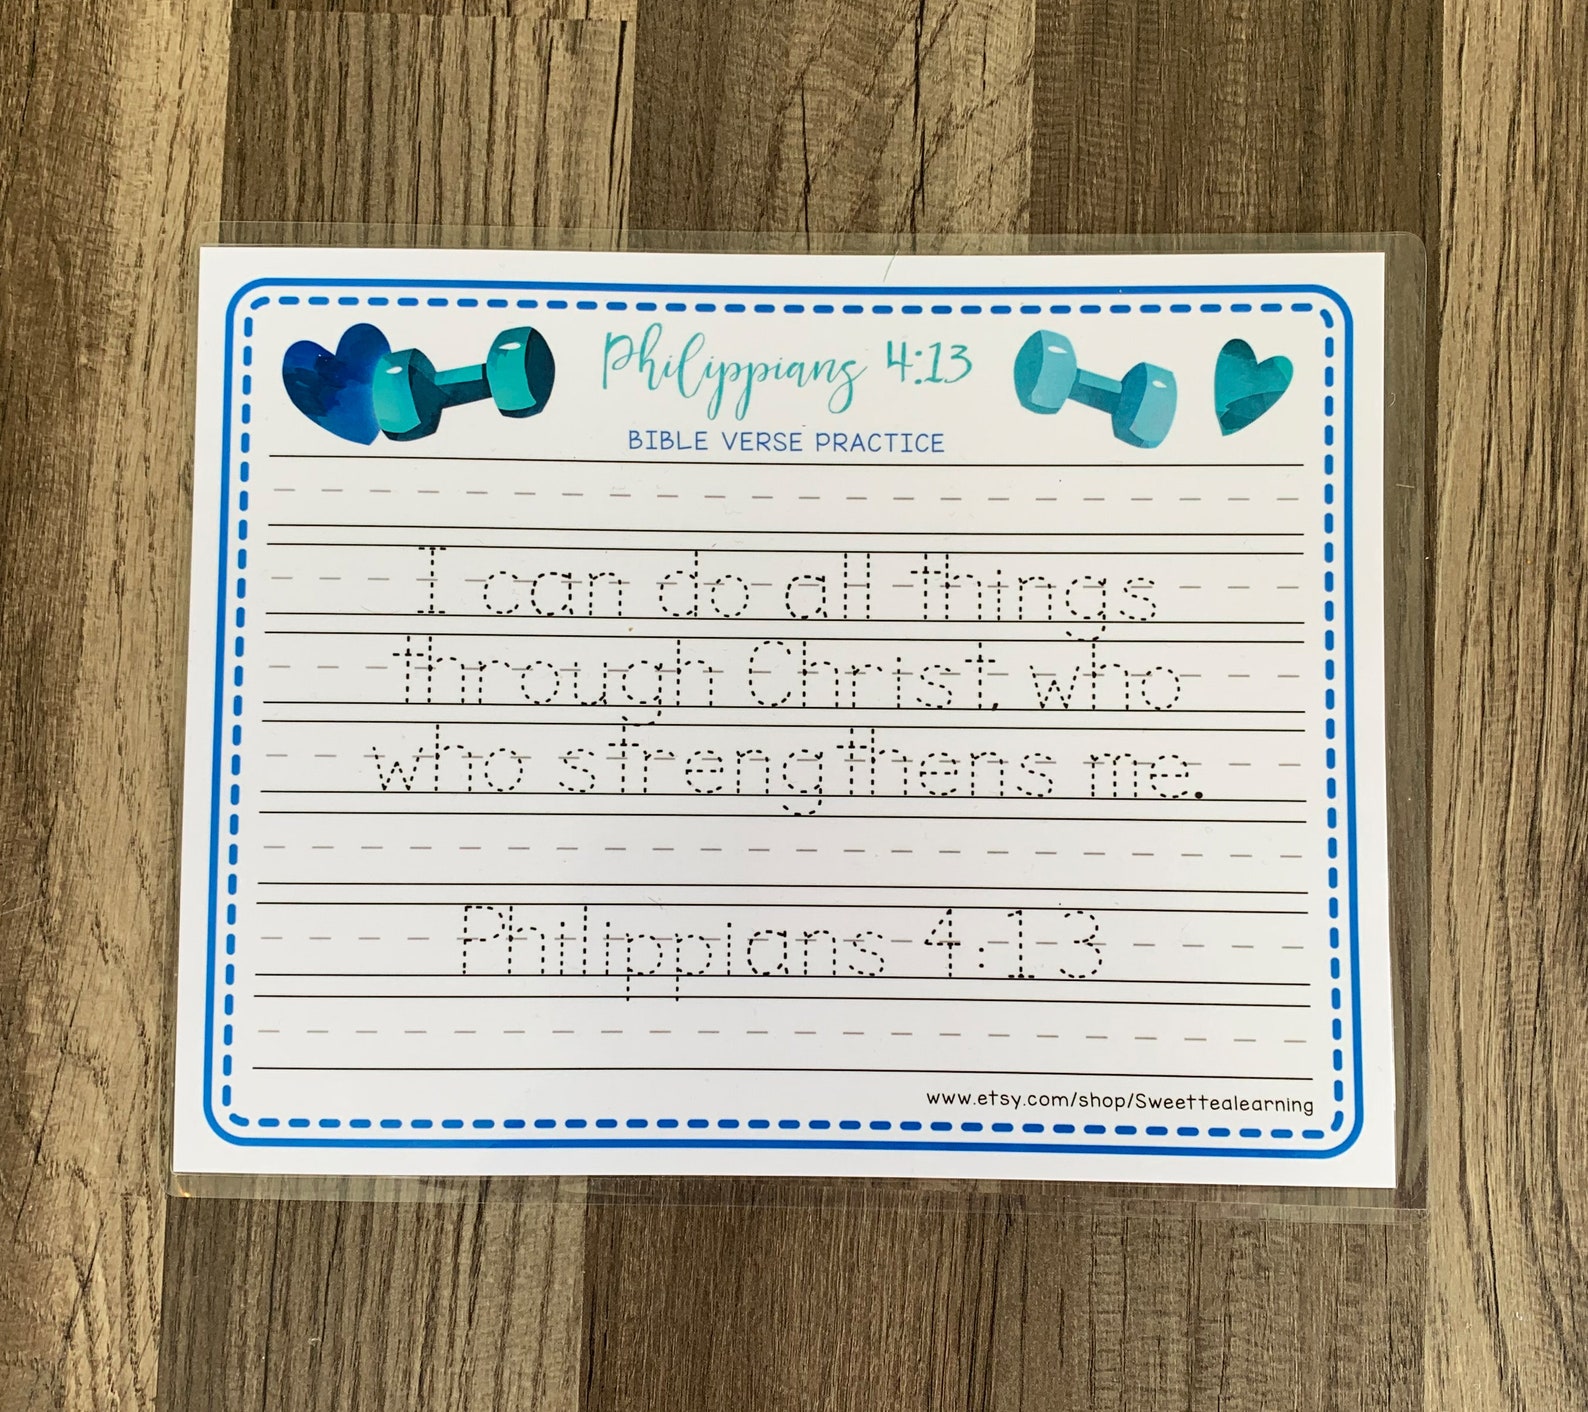 Philippians 4:13
BIBLE VERSE PRACTICE
I can do all things
through Christ, who
who strengthens me.
Philippians 4:13
www.etsy.com/shop/Sweettealearning